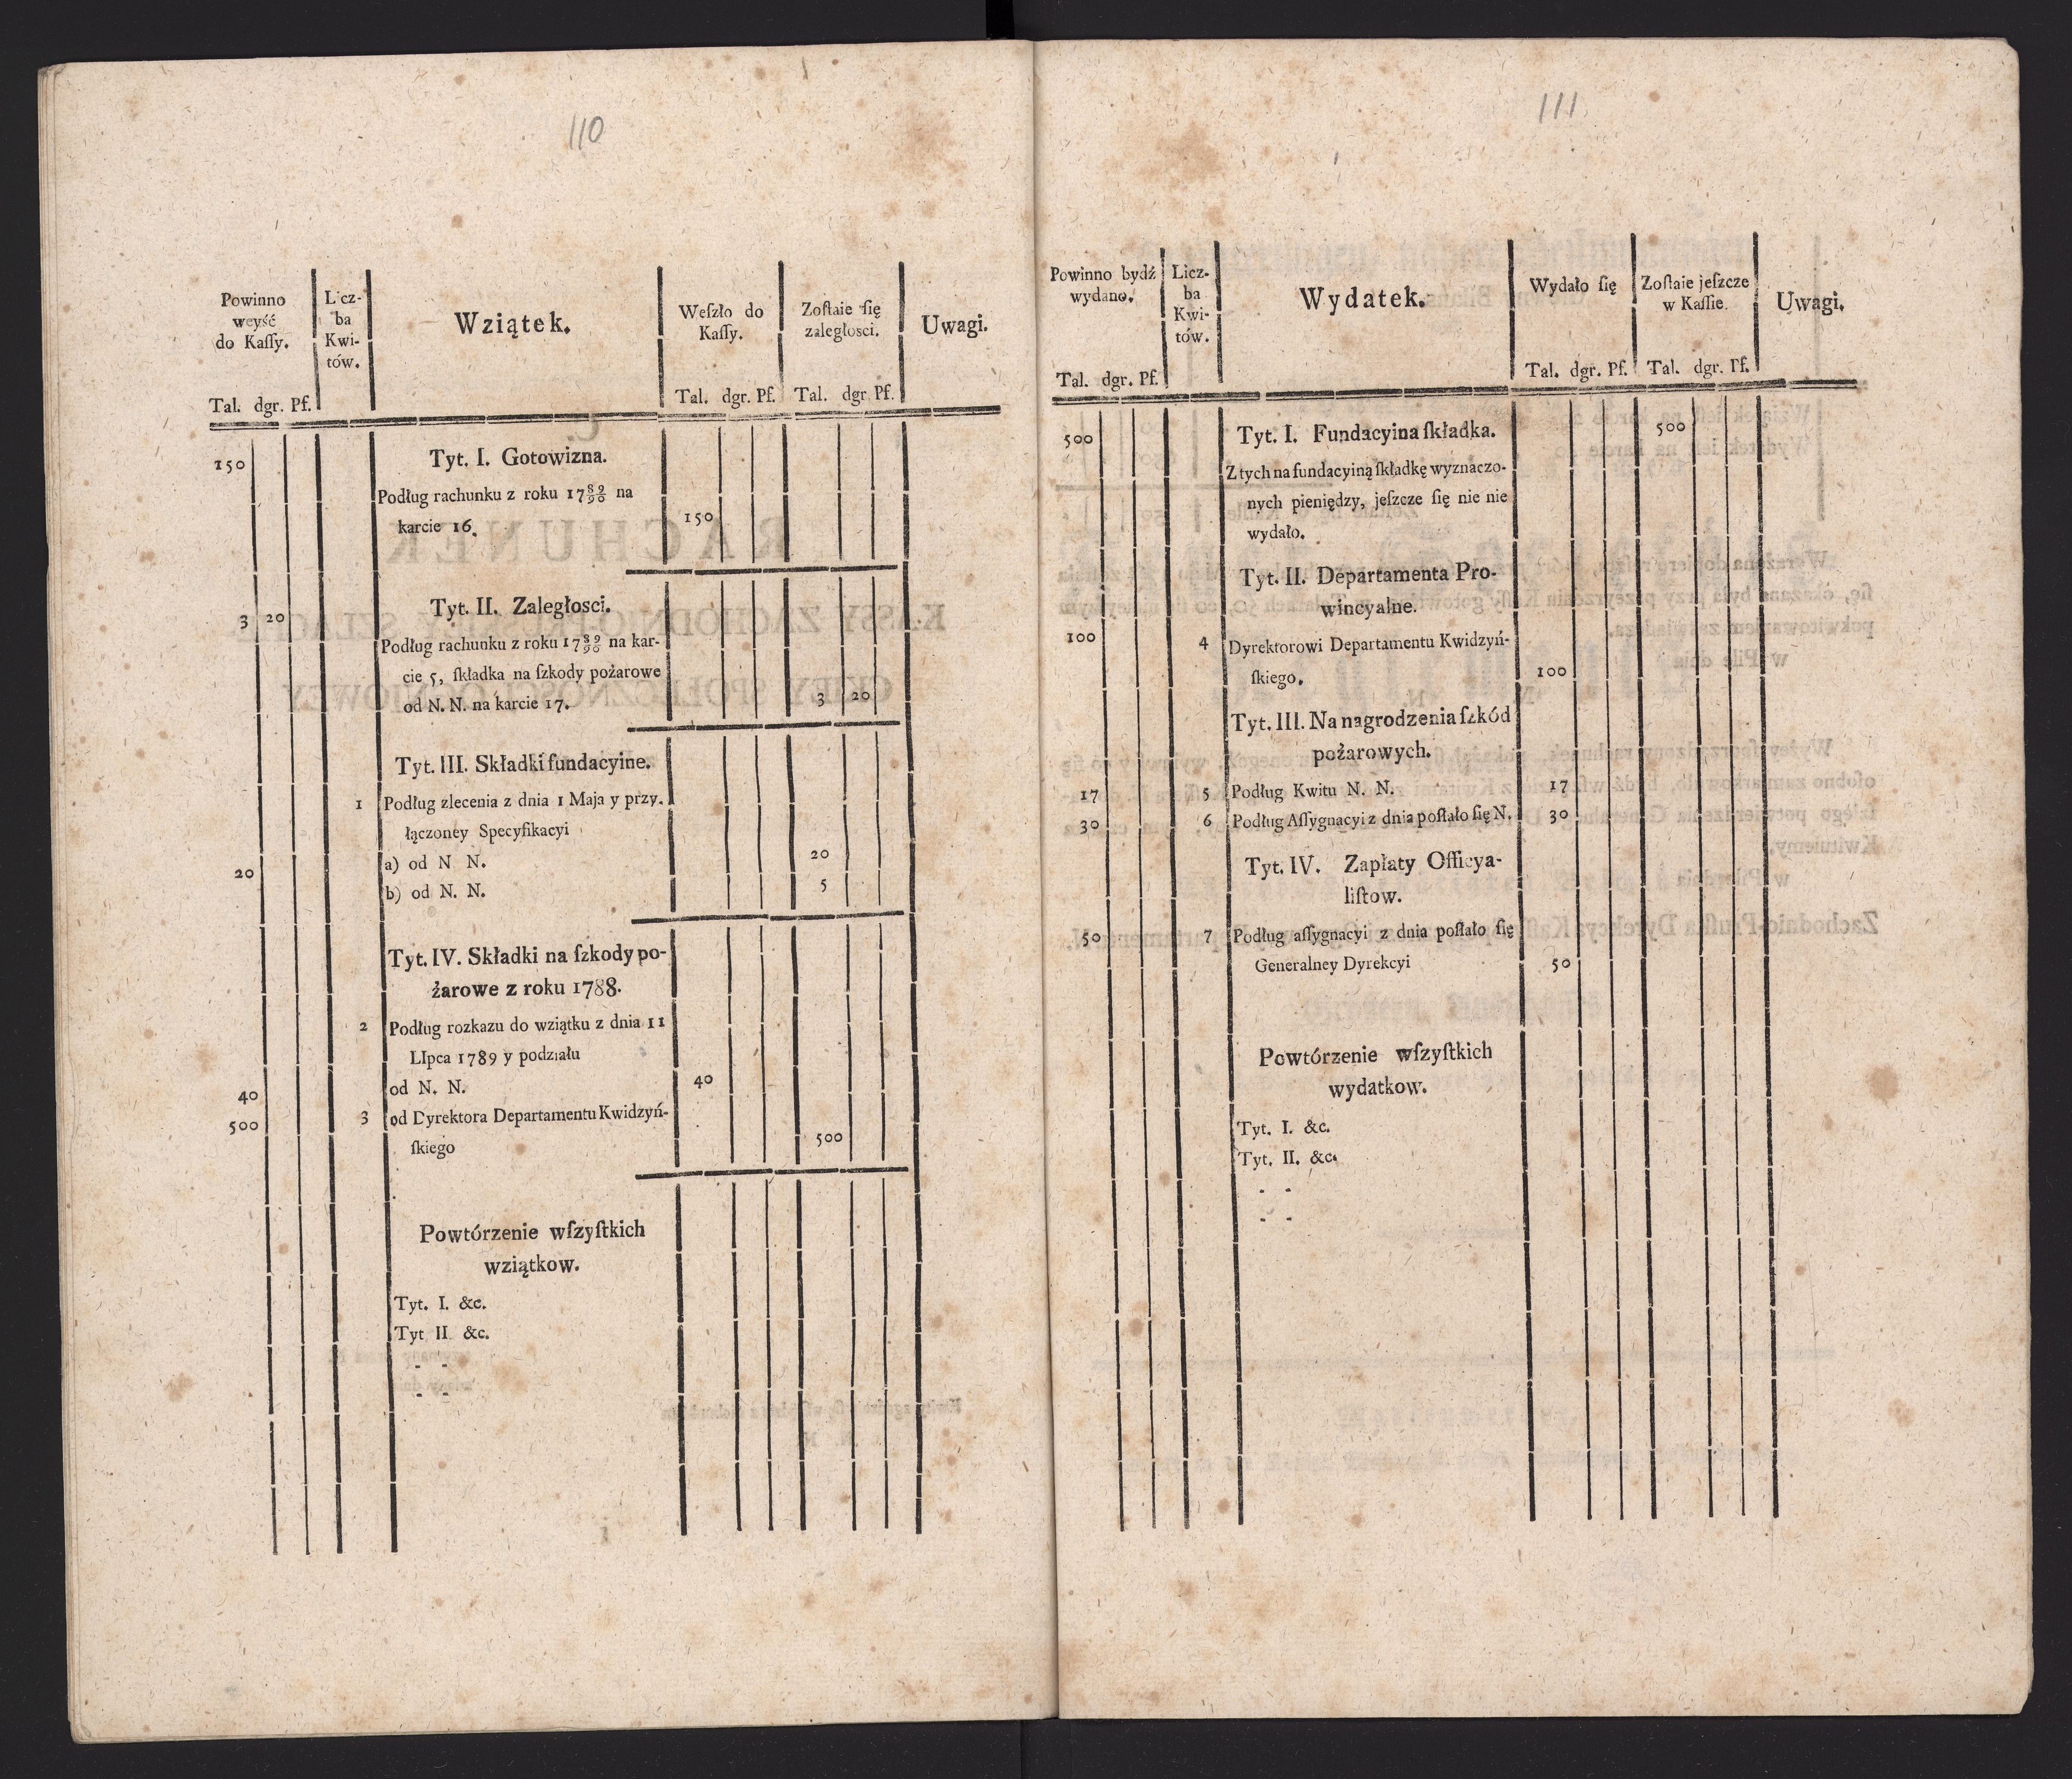 110
Powinno
weyść
do Kaſſy.
Licz-
ba
Kwi-
tów.
Wziątek.
Weſzło do
Kaſſy.
Zoſtaie ſię
zaległosci.
Uwagi.
Tal. dgr. Pf.
Tal. dgr. Pf.
Tal. dgr Pf.
150
Tyt. I. Gotowizna.
Podług rachunku z roku 17 89/90 na
karcie 16.
150
3 20
Tyt. II. Zaległosci.
Podług rachunku z roku 17 89/90 na kar-
cie 5, ſkładka na ſzkody pożarowe
od N. N. na karcie 17.
3 20
Tyt. III. Składki fundacyine.
1 Podług zlecenia z dnia 1 Maja y przy-
łączoney Specyfikacyi
20 a) od N N.
20
b) od N. N.
5
Tyt. IV. Składki na ſzkody po-
żarowe z roku 1788.
2 Podług rozkazu do wziątku z dnia 11
LIpca 1789 y podziału
40 od N. N.
40
500 3 od Dyrektora Departamentu Kwidzyń-
ſkiego
500
Powtórzenie wſzyſtkich
wziątkow.
Tyt. I. &c.
Tyt II &c.
- -
- -
111
Powinno bydź
wydano.
Licz-
ba
Kwi-
tów.
Wydatek.
Wydało ſię
Zoſtaie jeſzcze
w Kaſſie.
Uwagi.
Tal. dgr. Pf.
Tal. dgr. Pf.
Tal. dgr. Pf.
500
Tyt. I. Fundacyina ſkładka.
500
Z tych na fundacyiną ſkładkę wyznaczo-
nych pieniędzy, jeſzcze ſię nie nie
wydało.
Tyt. II. Departamenta Pro-
wincyalne.
100 4 Dyrektorowi Departamentu Kwidzyń-
ſkiego.
100
Tyt. III. Na nagrodzenia ſzkód
pożarowych.
17 5 Podług Kwitu N. N.
17
30 6 Podług Aſſygnacyi z dnia poſłało ſię N.
30
Tyt. IV. Zapłaty Officya-
liſtow.
50 7 Podług aſſygnacyi z dnia poſłało ſię
Generalney Dyrekcyi
50
Powtórzenie wſzyſtkich
wydatkow.
Tyt. I. &c.
Tyt. II. &c.
- -
- -